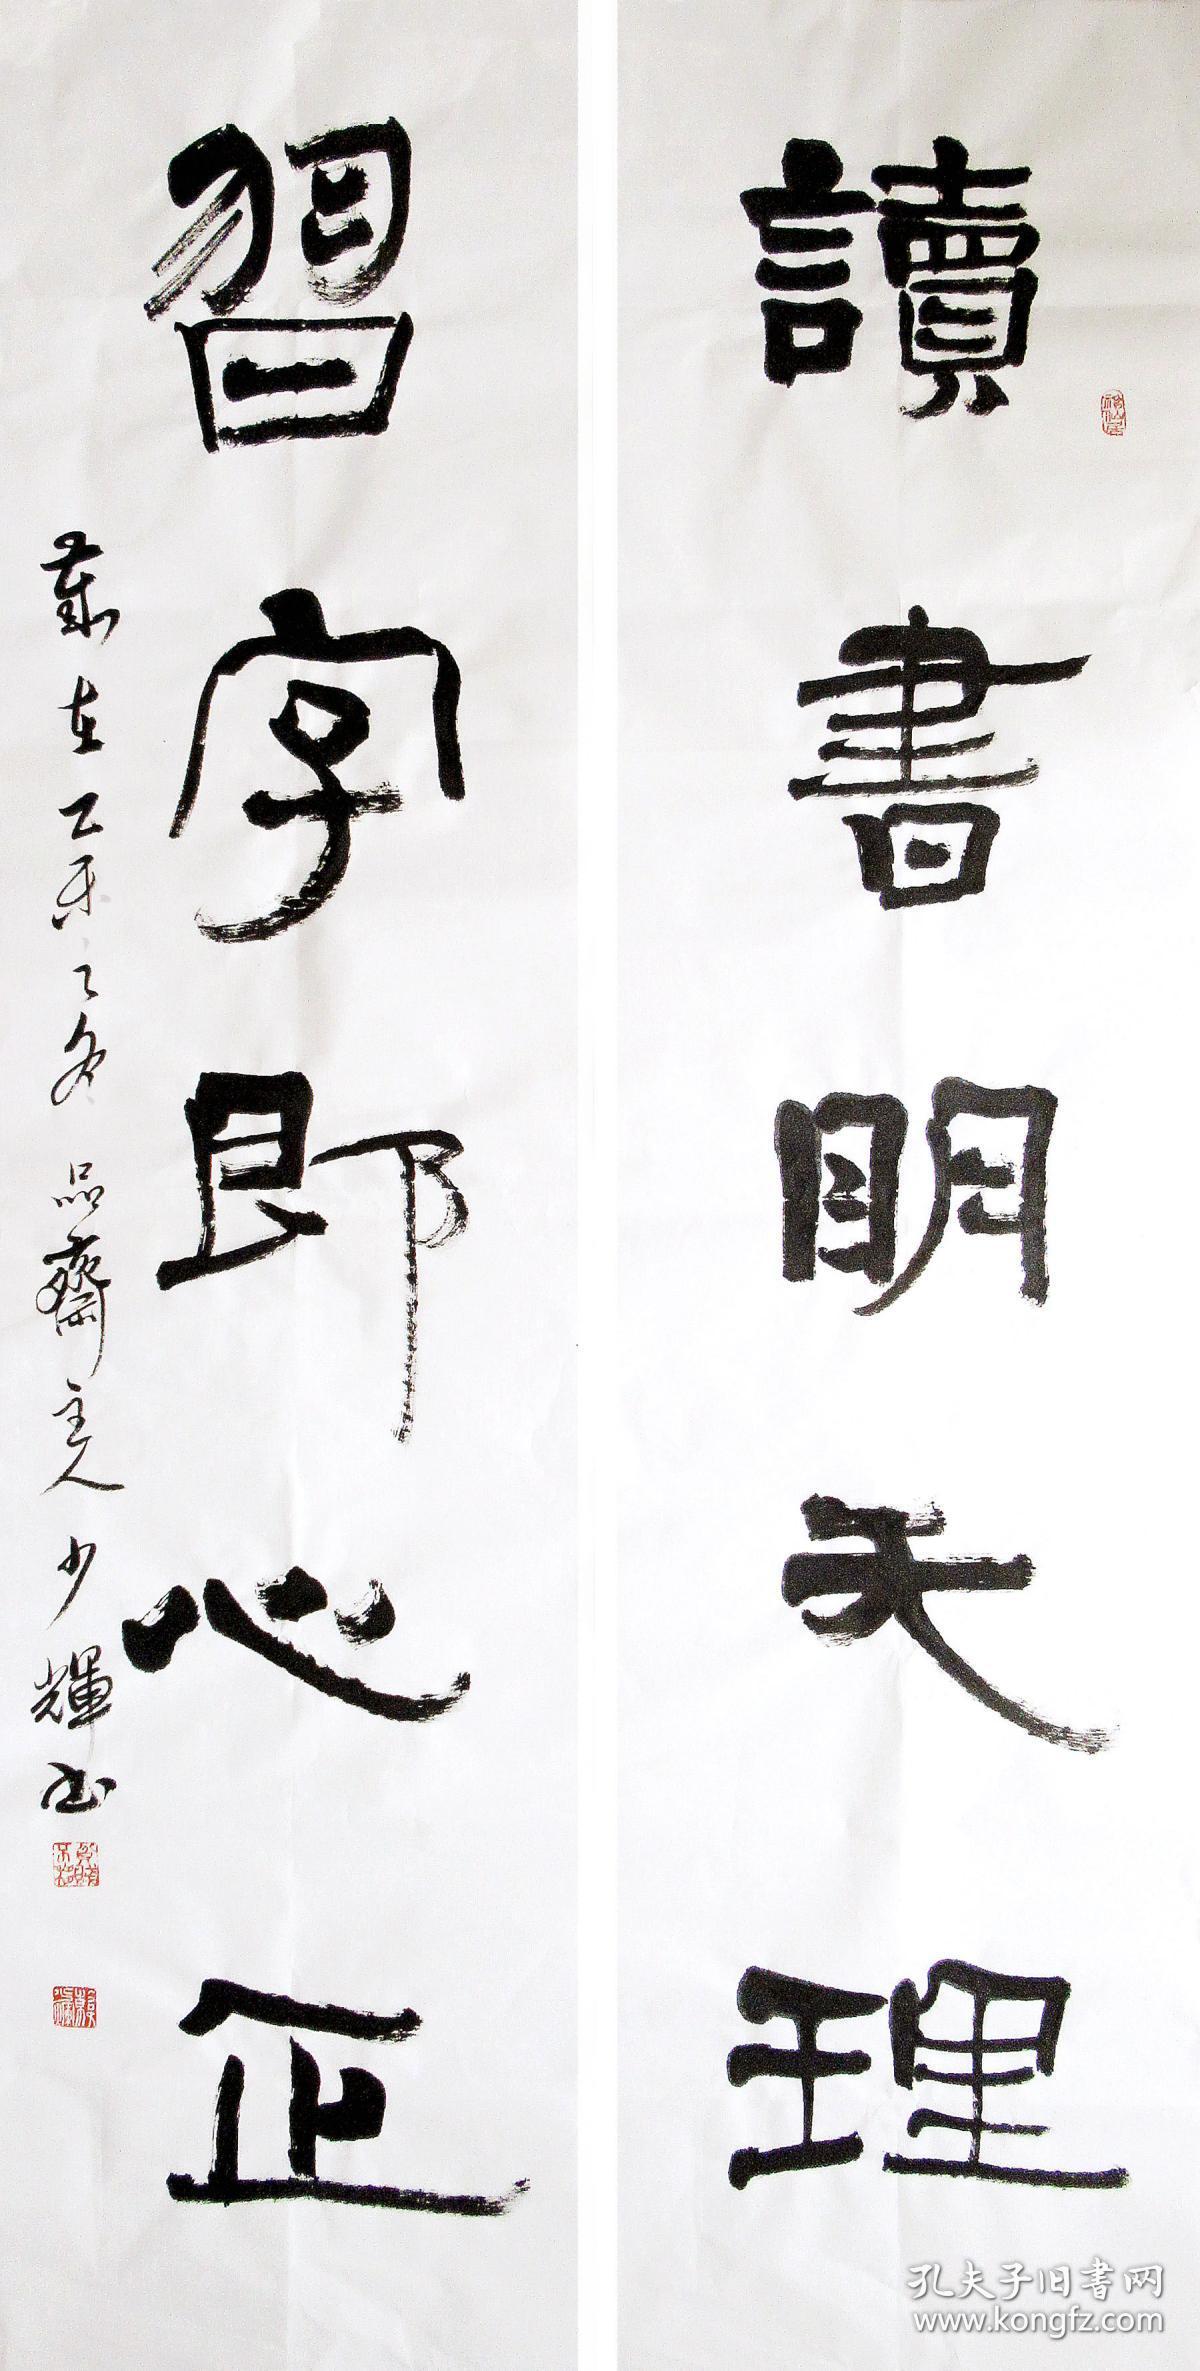 讀書明天理
習字即心正
歲在乙未之冬 品齋主人 少輝书
孔夫子旧書网
www.kongfz.com